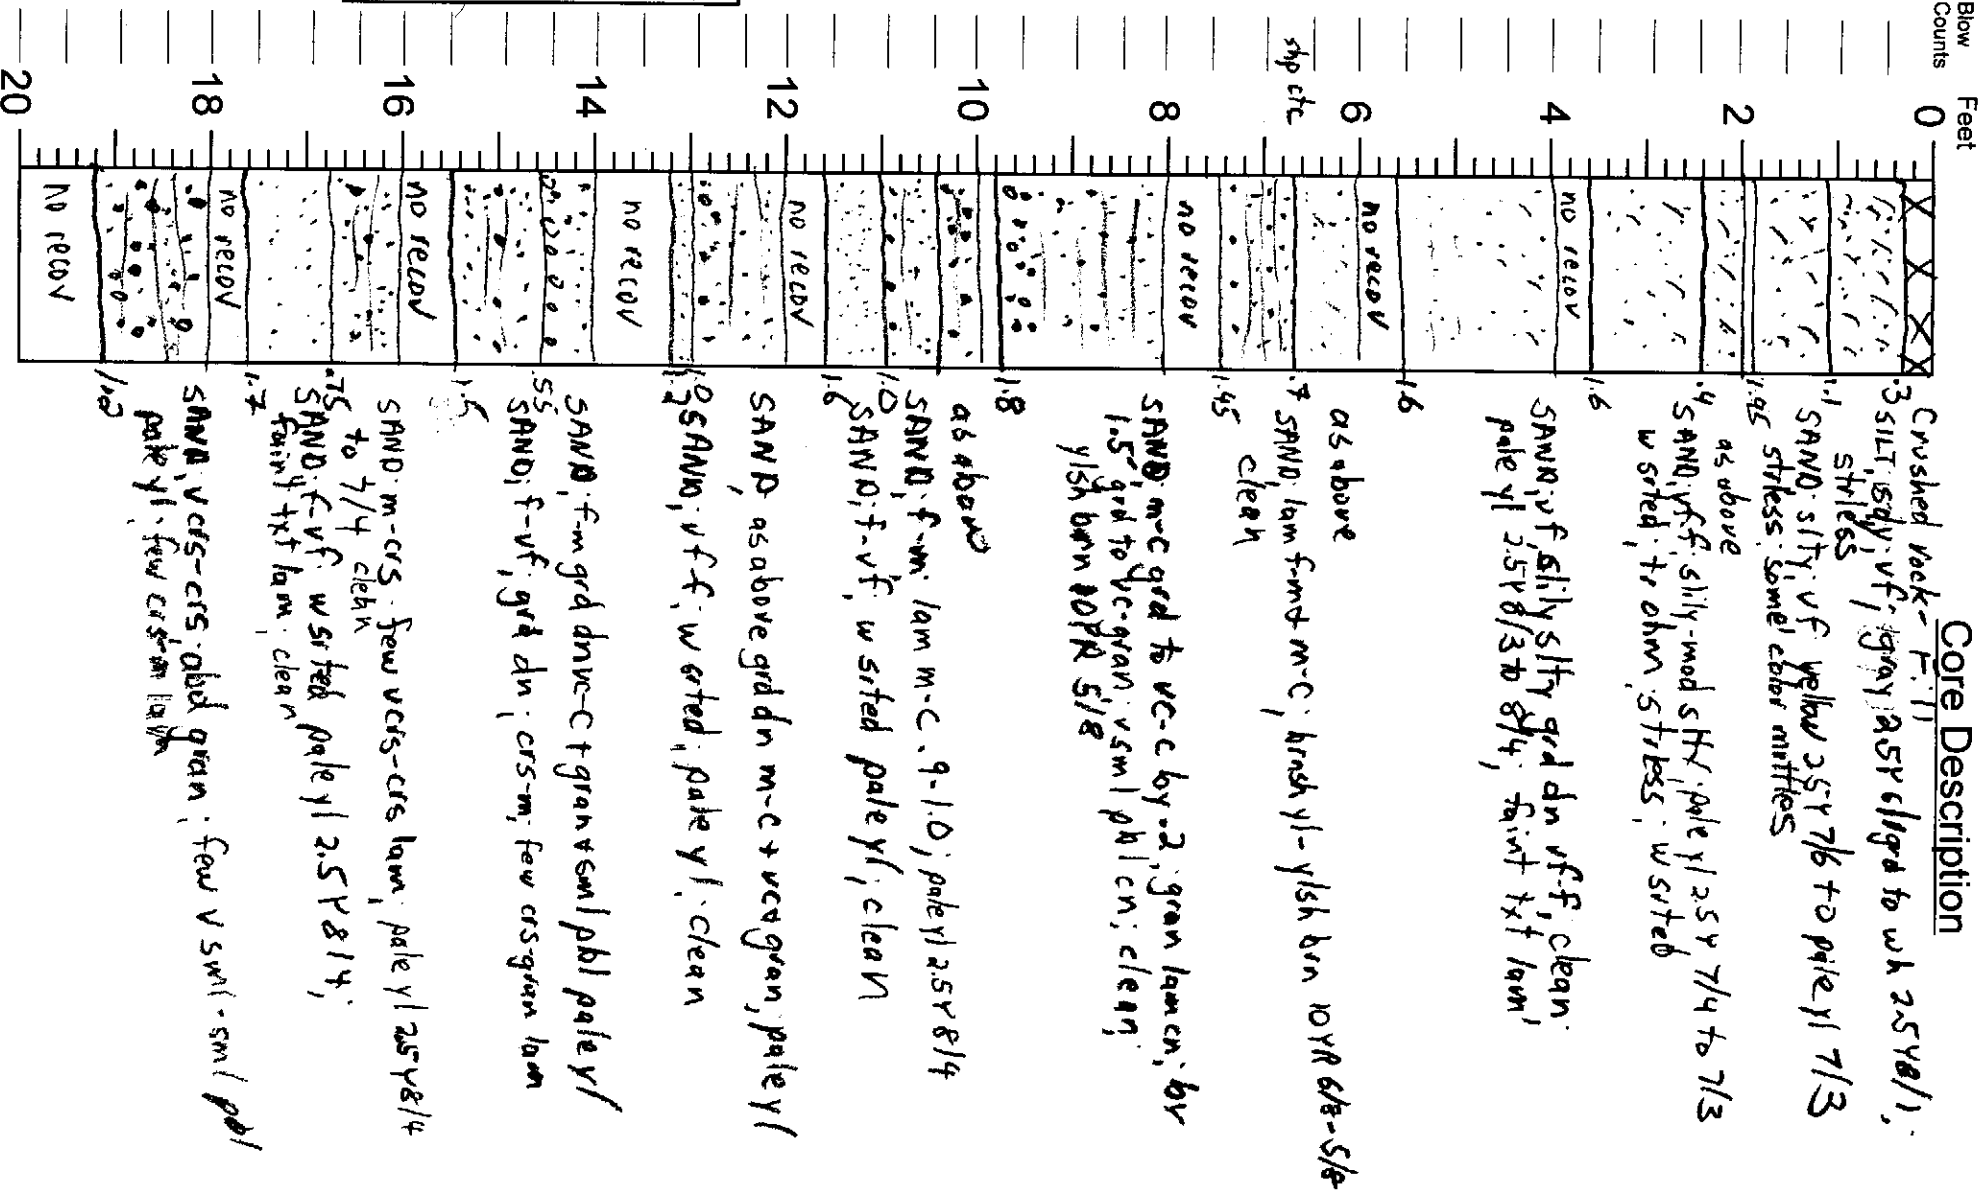 Core Description
Blow
Counts
Feet
0
Crushed rock - Fill
.3 SILT, sdy, vf, gray 2.5Y 6/1 grd to wh 2.5Y 8/1;
strless
1.1 SAND, slty, vf yellow 2.5Y 7/6 to pale yl 7/3
1.95 strless: some color mottles
2
as above
.4 SAND, vf-f, slily-mod slty, pale yl 2.5Y 7/4 to 7/3
w srted, to ohm, strless; w srted
1.6
no recov
4
SAND, vf, slily slty grd dn vf-f, clean
pale yl 2.5Y 8/3 to 8/4; faint txt lam
1.6
no recov
6
as above
.7 SAND, lam f-m + m-c; brnsh yl - ylsh brn 10YR 6/8-5/8
clean
shp ctc
1.45
no recov
8
SAND m-c grd to vc-c by .2, gran lam cn; by
1.5 grd to vc-gran, v sml pbl cn; clean;
ylsh brn 10YR 5/8
1.8
10
as above
SAND, f-m: lam m-c .9-1.0; pale yl 2.5Y 8/4
1.0
SAND, f-vf, w srted pale yl; clean
1.6
no recov
12
SAND, as above grd dn m-c + vc + gran, pale yl
1.0 SAND, vf-f, w srted, pale yl, clean
1.2
no recov
14
SAND, f-m grd dn vc-c + gran + sml pbl pale yl
.55
SAND, f-vf, grd dn; crs-m, few crs-gran lam
1.5
no recov
16
SAND m-crs few vcrs-crs lam, pale yl 2.5Y 8/4
to 7/4 clean
.75
SAND, f-vf w srted pale yl 2.5Y 8/4;
faint txt lam; clean
1.7
no recov
18
SAND, vcrs-crs abd gran; few v sml-sml pbl
pale yl few crs-m
no recov
20